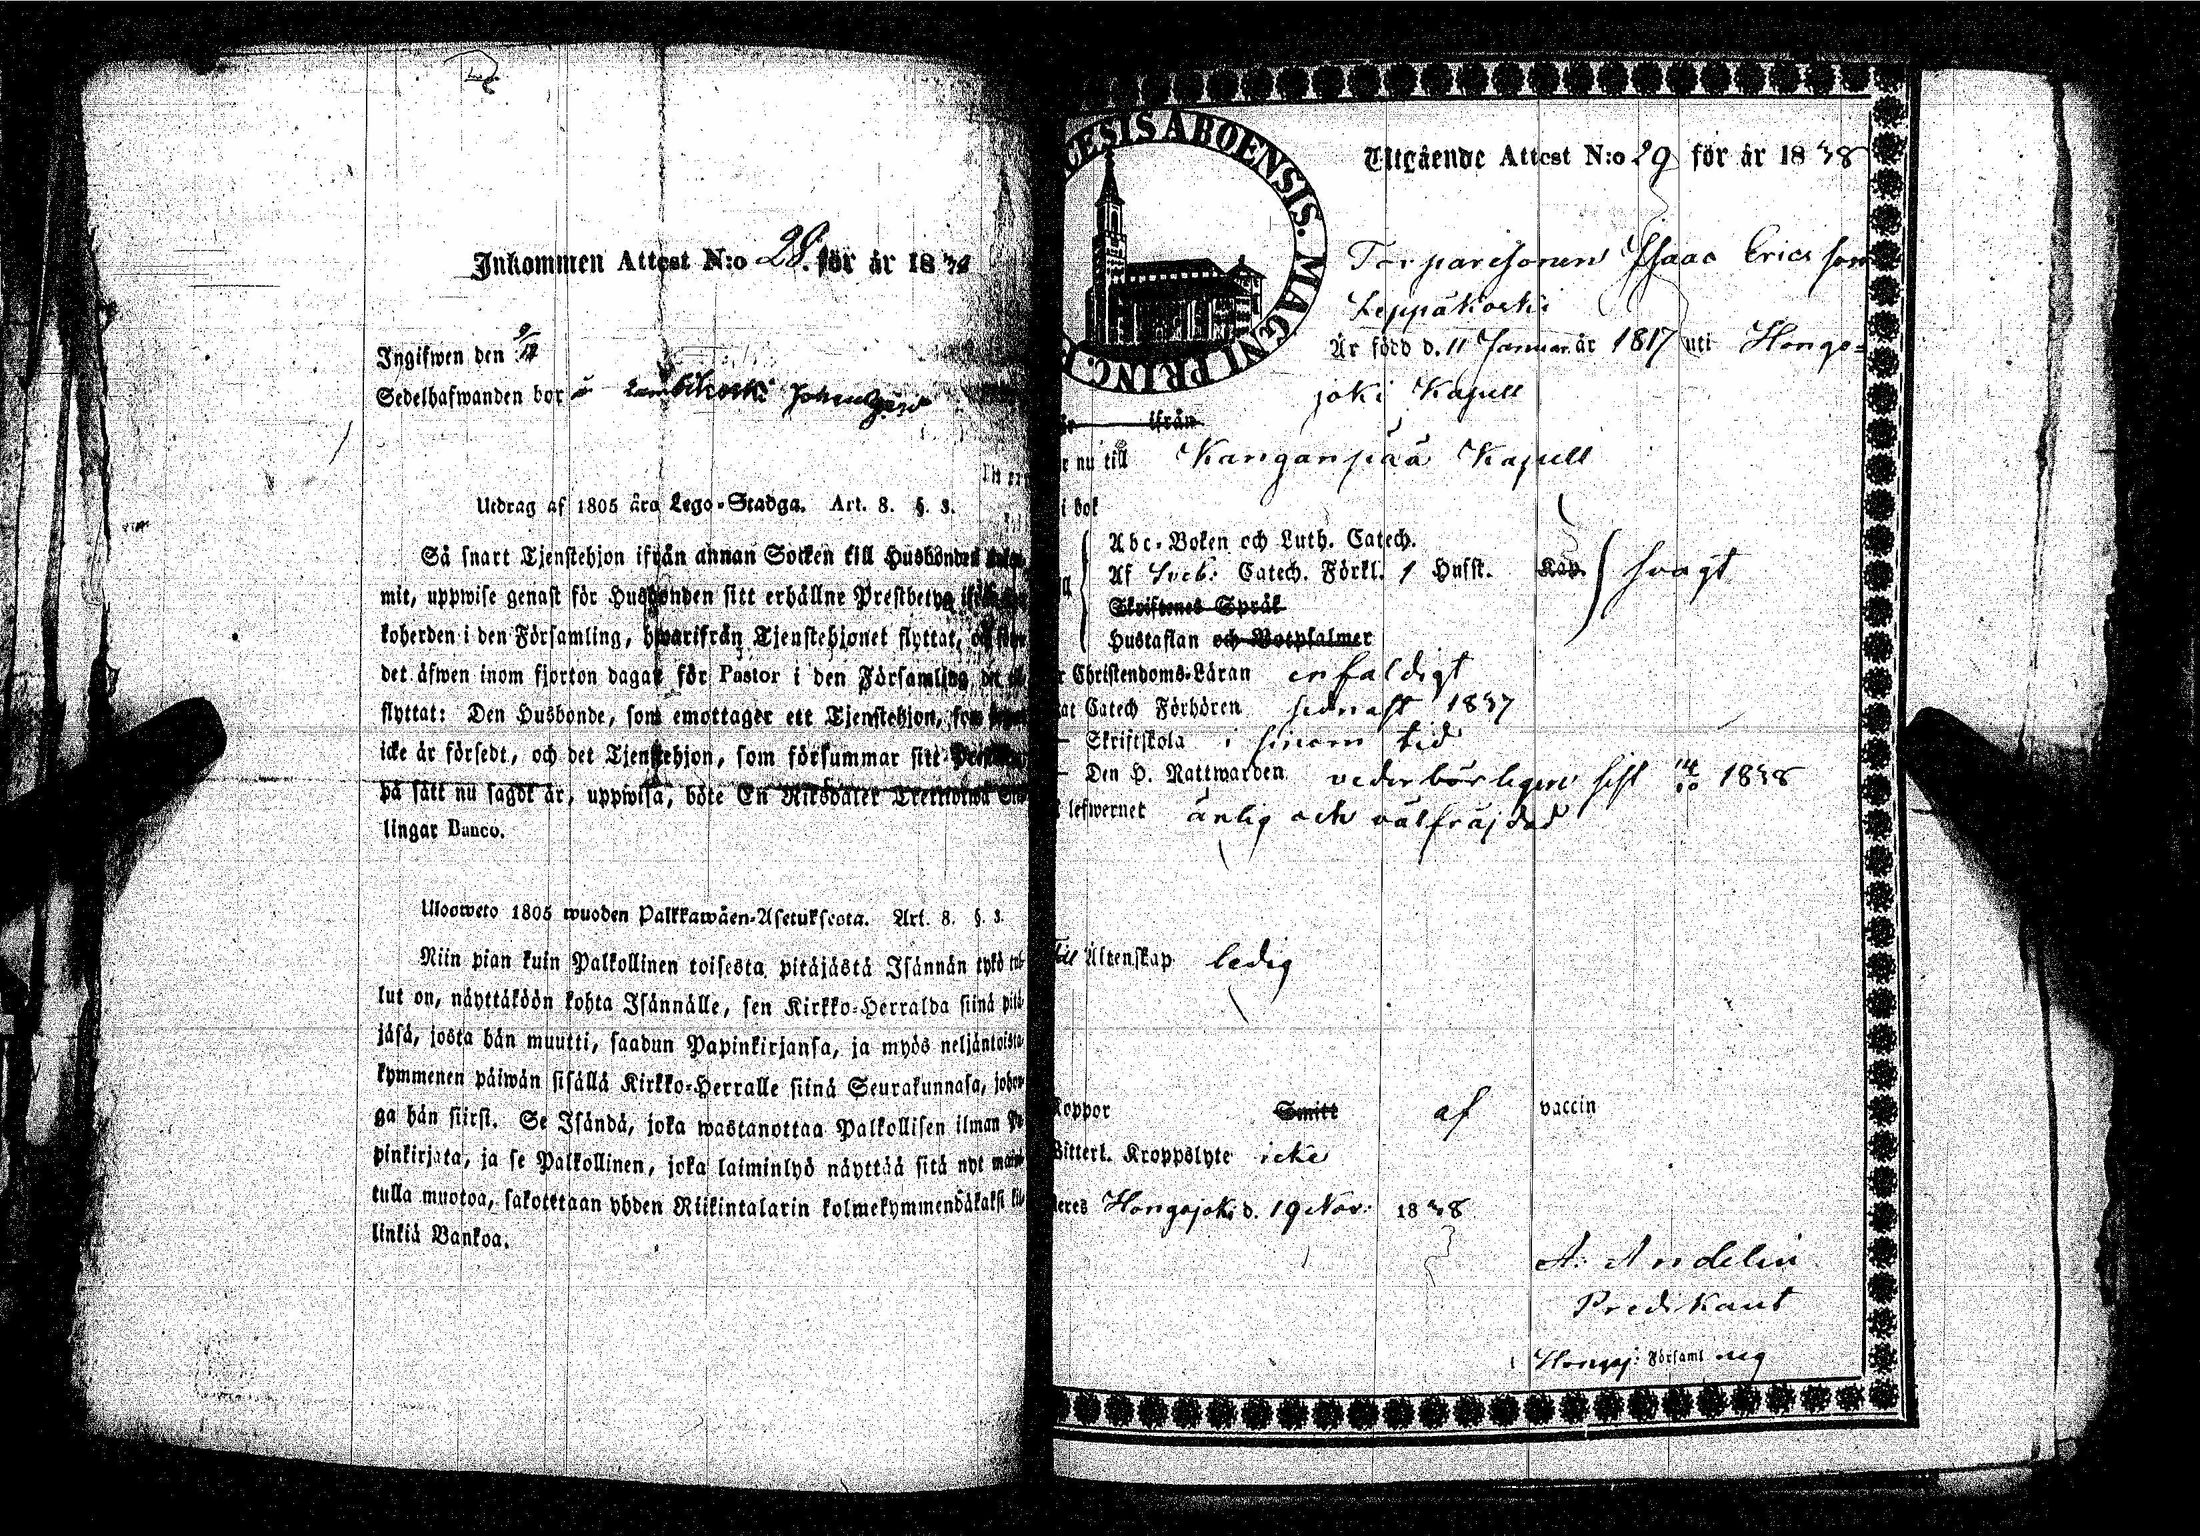 Inkommen Attest N:o 28. för år 18
Ingifwen den 9/12
Sedelhafwanden bor i
Utdrag af 1805 åra Lego-Stadga. Art. 8. §. 3.
Så snart Tjenstehjon ifrån annan Socken till Husbonden
mit, uppwise genast för Husbonden sitt erhållne Prestbetyg
koherden i den Församling, hwarifrån Tjenstehjonet flyttat,
det äfwen inom fjorton dagar för Pastor i den Församling,
flyttat: Den Husbonde, som emottager ett Tjenstehjon, som
icke är försedt, och det Tjenstehjon, som försummar sitt
på sätt nu sagdt är, uppwisa, böte En Riksdaler Trettiotwå
lingar Banco.
Ulosweto 1805 wuoden Palkkawäen-Asetuksesta. Art. 8. §. 3.
Niin pian kuin Palkollinen toisesta pitäjästä Isännän tykö tul-
lut on, näyttäköön kohta Isännälle, sen Kirkko-Herralda siinä pitä-
jäsä, josta hän muutti, saadun Papinkirjansa, ja myös neljäntoista-
kymmenen päiwän sisällä Kirkko-Herralle siinä Seurakunnasa, johon-
ga hän siirst. Se Isändä, joka wastanottaa Palkollisen ilman Pa-
pinkirjata, ja se Palkollinen, joka laiminlyö näyttää sitä nyt mainit-
tulla muotoa, sakotetaan yhden Riikintalarin kolmekymmendäkaksi kil-
linkiä Bankoa.
CESIS ABOENSIS. MAGNI PRINC.
Utgående Attest N:o 29 för år 1838
Torparesonen Isaac Ericsson
Leppäkoski
Är född d. 11 Januar. år 1817 uti Hongo-
joki Kapell
ifrån
r nu till Kanganpää Kapell
i bok
Abc-Boken och Luth. Catech.
Af Sveb: Catech. Förkl. 1 Husst. Kap. svagt
Skriftenes Språk
Hustaflan och Botpsalmer
r Christendoms-Läran enfaldigt
at Catech Förhören sednast 1837
— Skriftskola i sinom tid
— Den H. Nattwarden vederbörligen sist 14/10 1838
lefwernet ärlig och välfräjdad
till Äktenskap ledig
Koppor Smitt af vaccin
Witterl. Kroppslyte icke
teres Hongojoki d. 19 Nov: 1838
A: Andelin
Predikant
i Hongoj: Församl ing